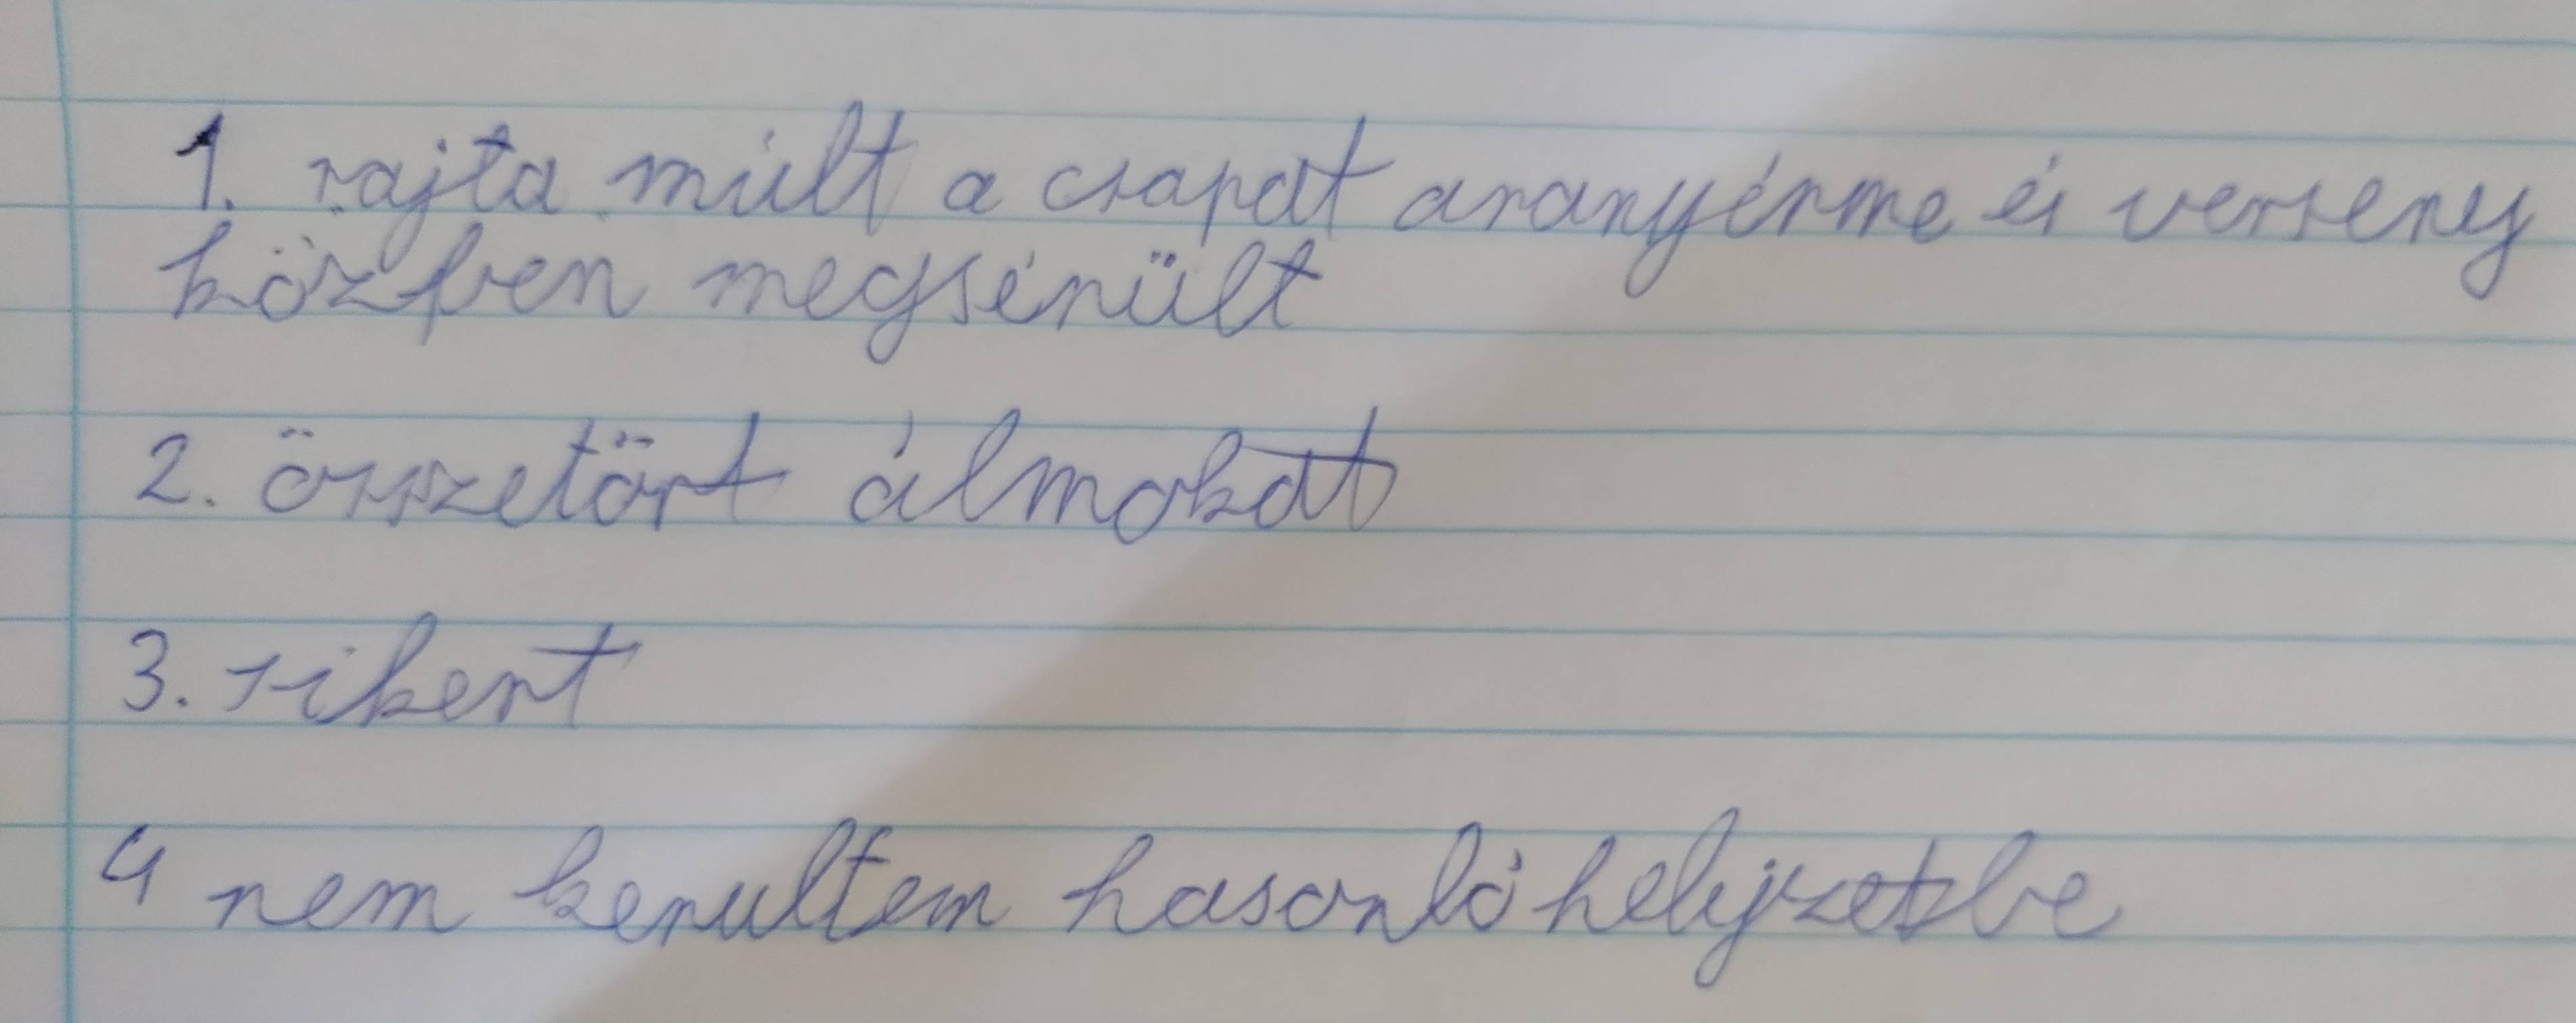 1. rajta múlt a csapat aranyérme és verseny
közben megsérült
2. összetört álmokat
3. sikert
4 nem kerultem hasonló helyzetbe